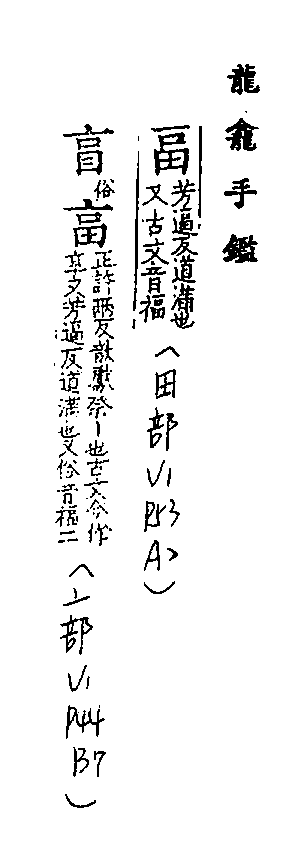 龍龕手鑑
畐芳逼反道滿也
又古文音福
（田部V1
P153
A7）
亯俗
畗正許兩反歆獻祭丨也古文今作
享又芳逼反道滿也又俗音福二
（亠部V1
P44
B7）